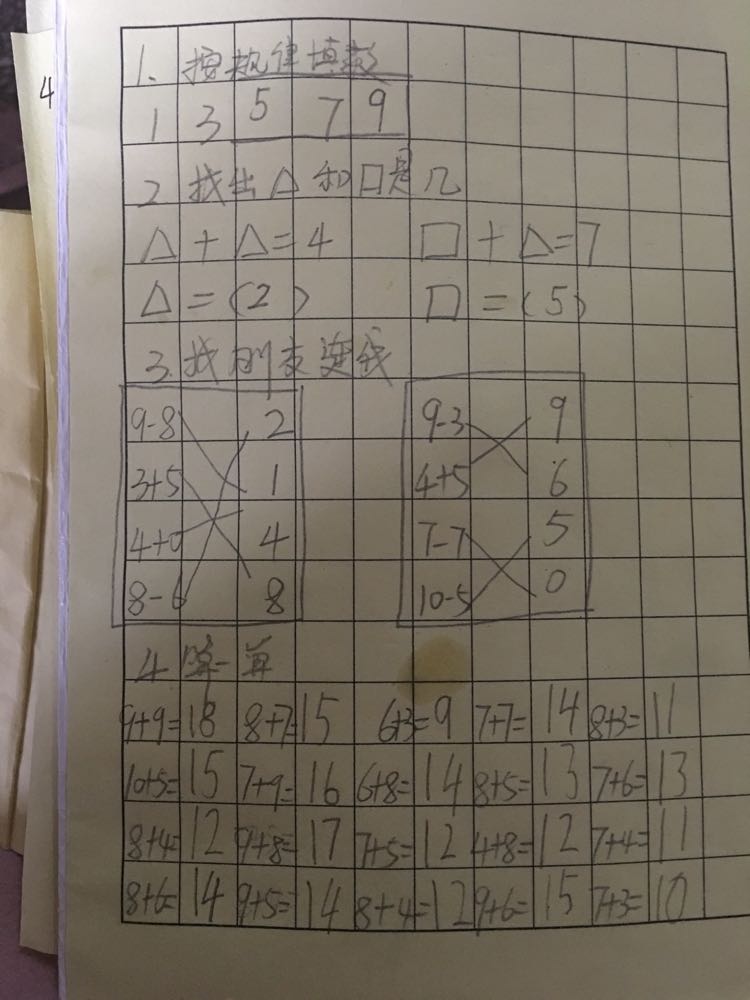 1. 按规律填数
1 3 5 7 9
2 找出△和□是几
△+△=4 □+△=7
△=(2) □=(5)
3. 找朋友连线
9-8 2 9-3 9
3+5 1 4+5 6
4+0 4 7-7 5
8-6 8 10-5 0
4 算一算
9+9=18 8+7=15 6+3=9 7+7=14 8+3=11
10+5=15 7+9=16 6+8=14 8+5=13 7+6=13
8+4=12 9+8=17 7+5=12 4+8=12 7+4=11
8+6=14 9+5=14 8+4=12 9+6=15 7+3=10
4